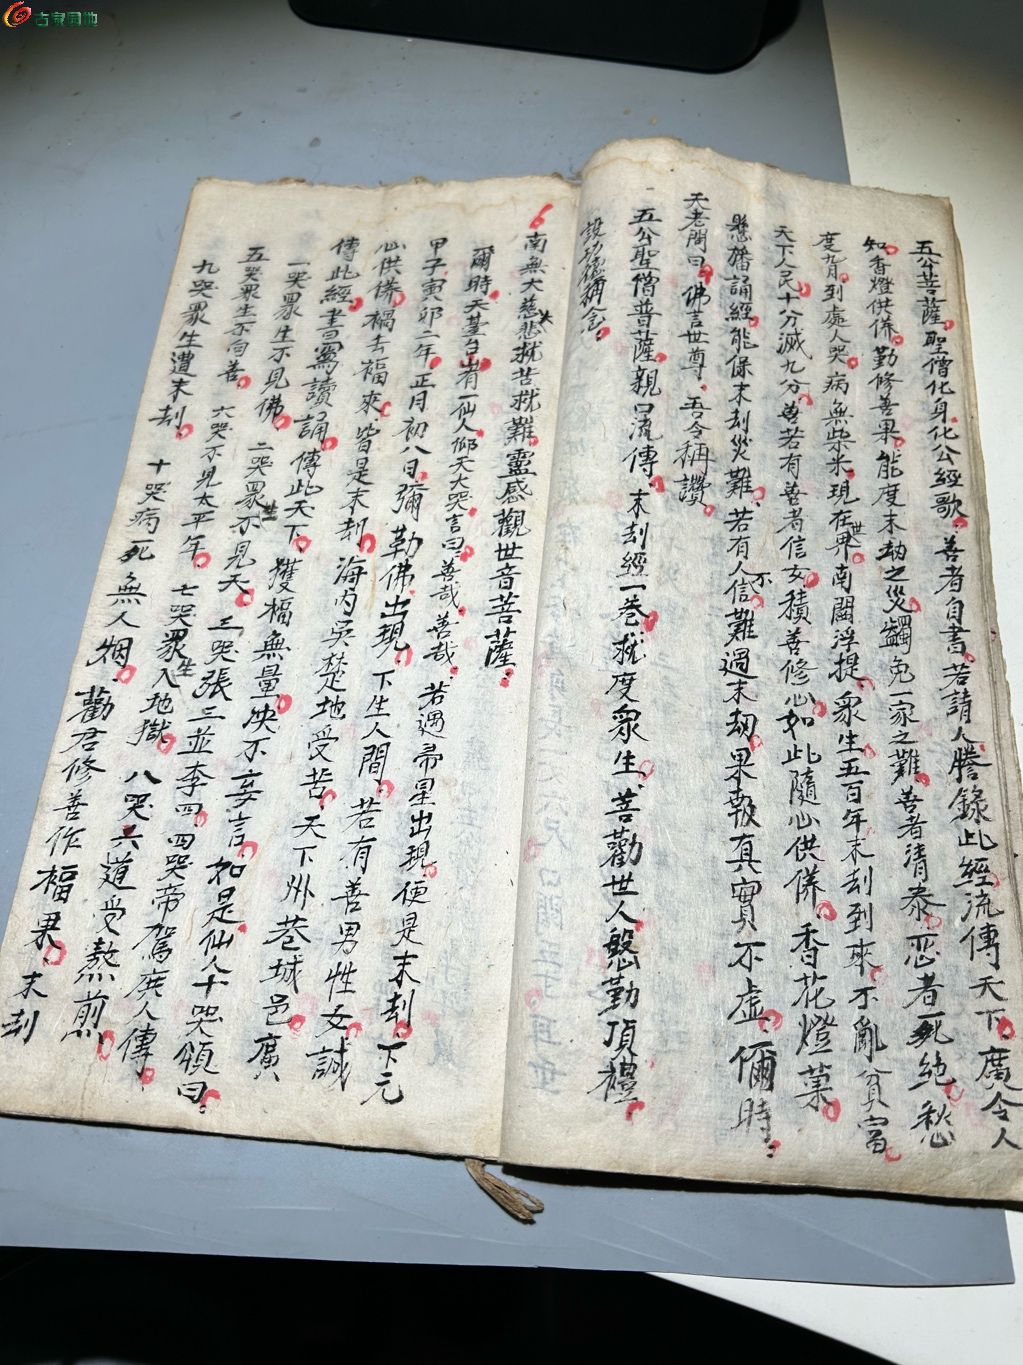 古家园地
五公菩薩聖僧化身化公經歌善者自書若請人謄錄此經流傳天下廣令人
知香燈供养勤修善果能度末劫之災蠲免一家之難善者清泰恶者死絶愁
度九月到處人哭病無柴米現在世界南閻浮提衆生五百年末刼到來不亂貧富
天下人民十分滅九分善若有善者信女積善修心如此隨心供养香花燈菓
懸旛誦經能保末刼災難若有人不信難過末劫果報真實不虚爾時
天老問曰佛言世尊吾今稱讚
五公聖僧普薩親口流傳末刼經一卷救度衆生菩勸世人慇勤頂禮
設功德稱念
南無大慈大悲救苦救難靈感觀世音菩薩
爾時天臺台出有一仙人仰天大哭言曰善哉善哉若遇帝星出現便是末刼下元
甲子寅卯二年正月初八日彌勒佛出現下生人間若有善男性女誠
心供养禍去福來皆是末刼海内吳楚地受苦天下州巷城邑廣
傳此經書寫讀誦傳此天下獲福無量决不妄言如是仙人十哭頌曰
一哭衆生不見佛二哭衆生不見天三哭張三並李四四哭帝駕庶人傳
五哭衆生不向善六哭不見太平年七哭衆生入地獄八哭六道受熬煎
九哭衆生遭末刼十哭病死無人烟勸君修善作福果末刼